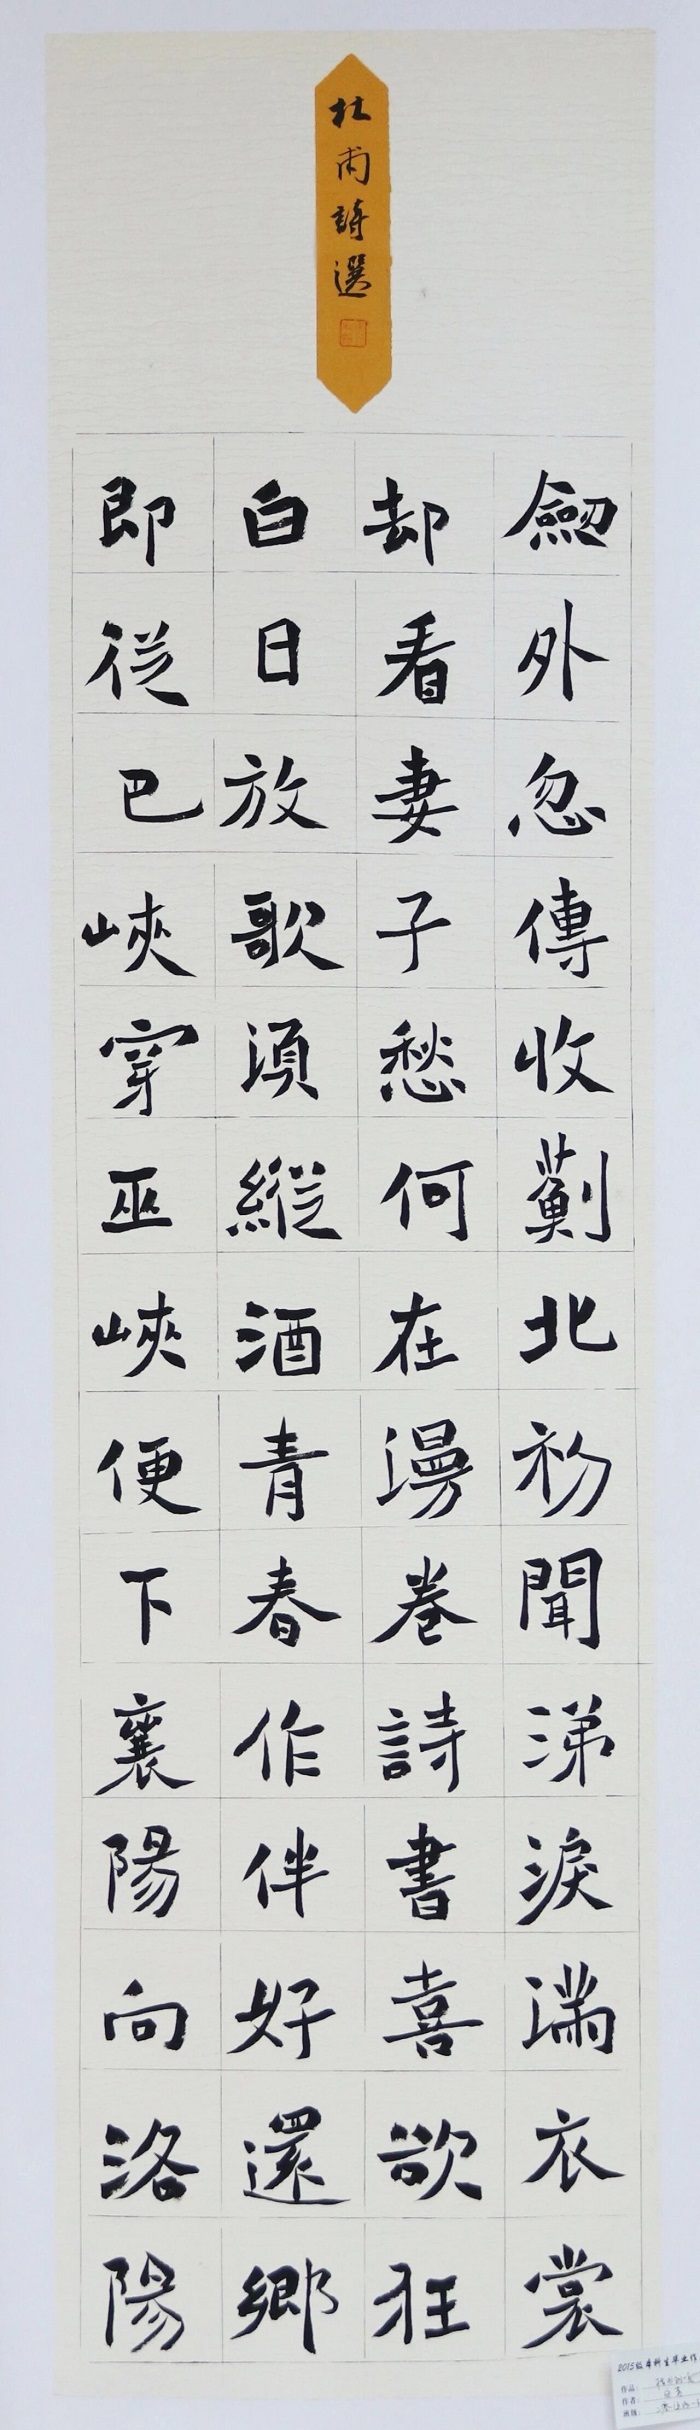 杜甫詩選
劒外忽傳收薊北初聞涕淚滿衣裳
却看妻子愁何在漫卷詩書喜欲狂
白日放歌須縱酒青春作伴好還鄉
即從巴峽穿巫峽便下襄陽向洛陽
2015级本科生毕业作
作品:
作者:
班级: